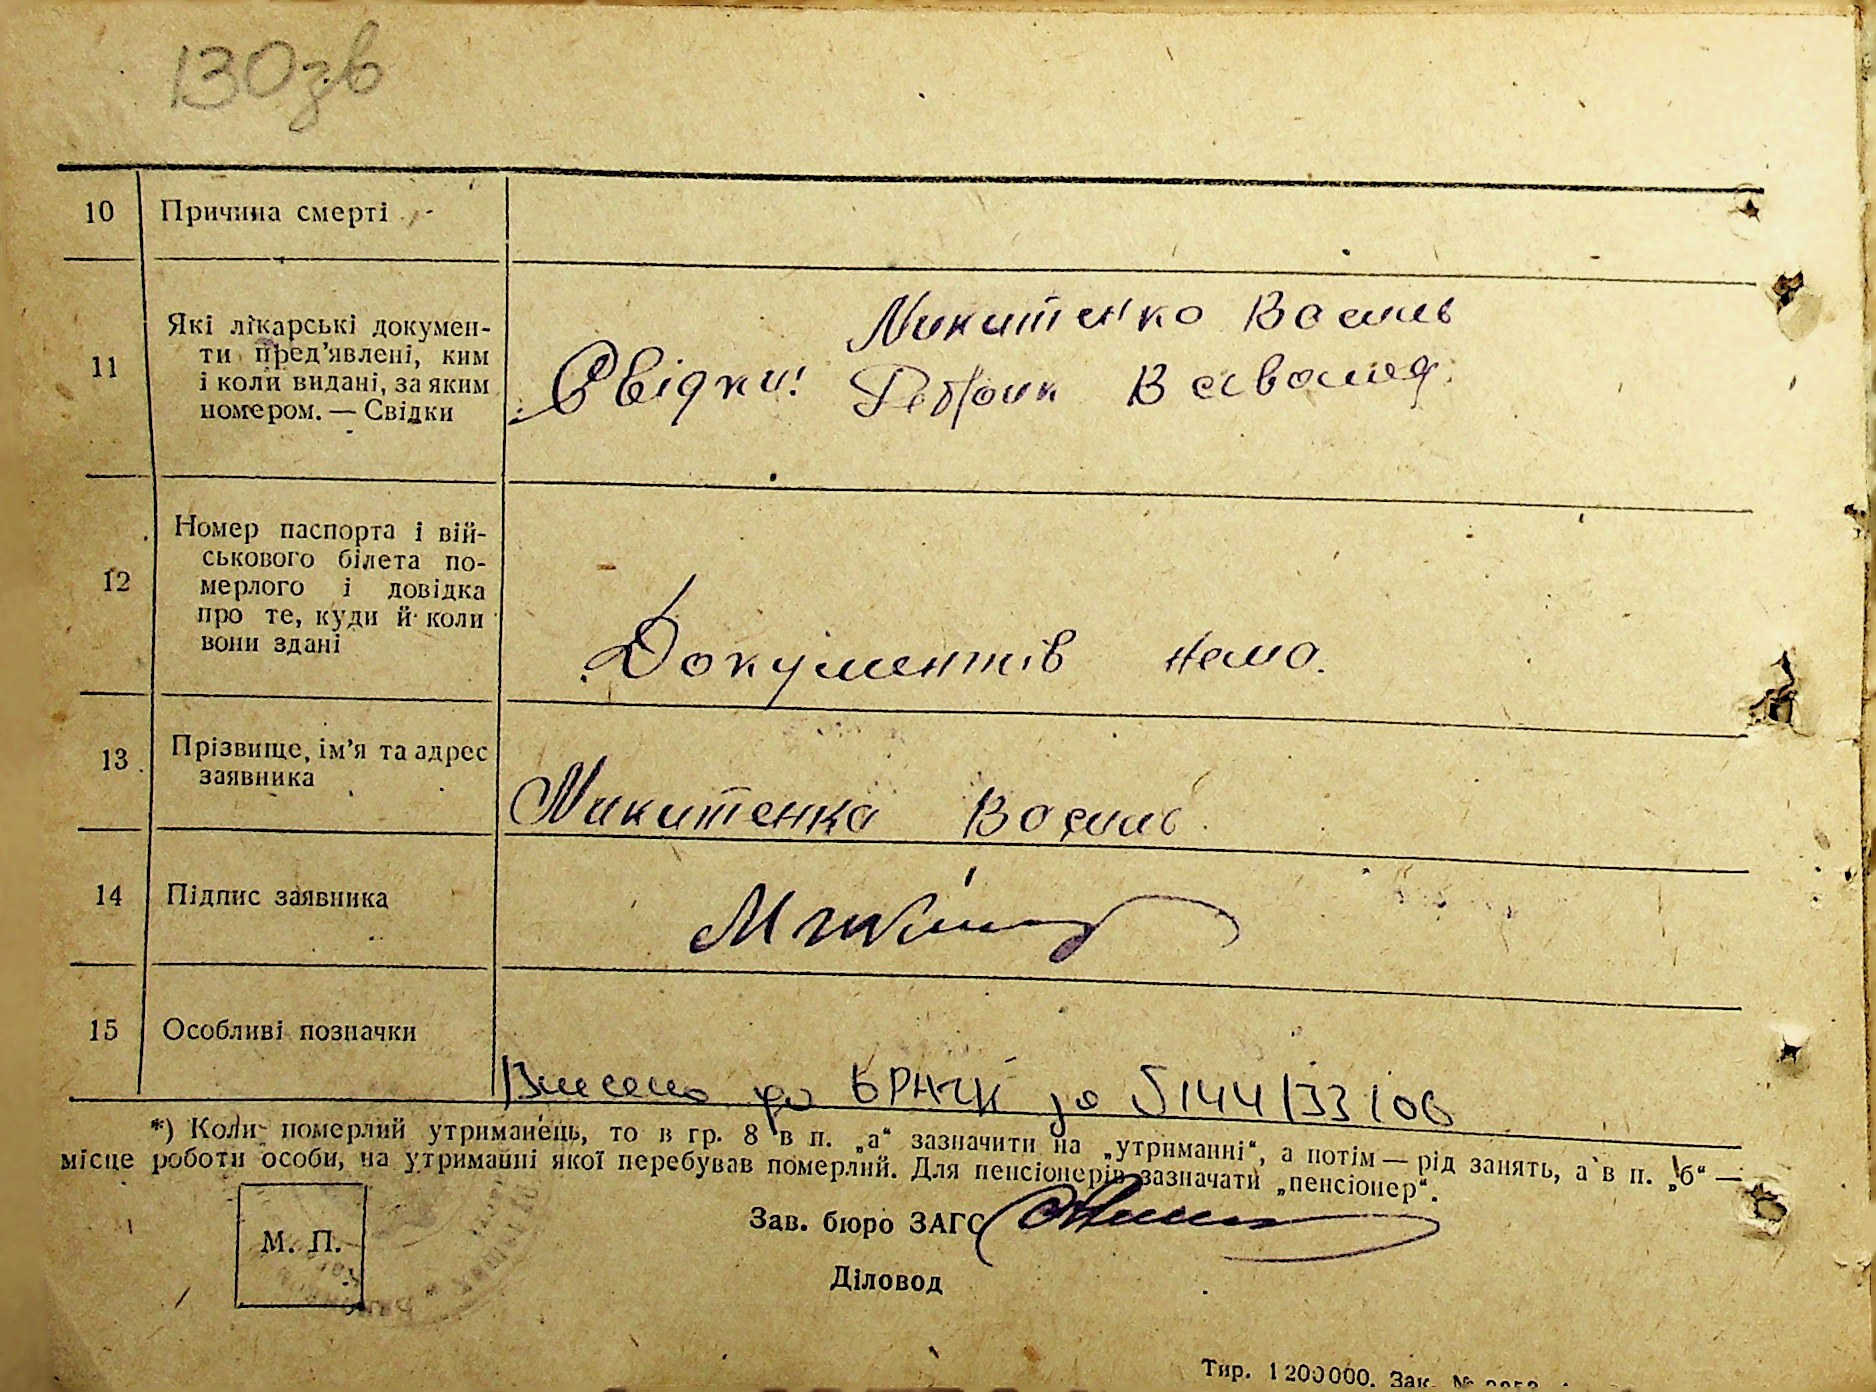 130зв
10 Причина смерті
11 Які лікарські документи пред'явлені, ким і коли видані, за яким номером. — Свідки
Микитенко Василь
Свідки: Всеволод
12 Номер паспорта і військового білета померлого і довідка про те, куди й коли вони здані
Документів нема.
13 Прізвище, ім'я та адрес заявника
Микитенко Василь
14 Підпис заявника
15 Особливі позначки
Внесено до за 5144/33/06
*) Коли померлий утриманець, то в гр. 8 в п. „а“ зазначити на „утриманні“, а потім — рід занять, а в п. „б“ —
місце роботи особи, на утриманні якої перебував померлий. Для пенсіонерів зазначати „пенсіонер“.
Зав. бюро ЗАГС
М. П.
Діловод
Тир. 1 200000. Зак. №